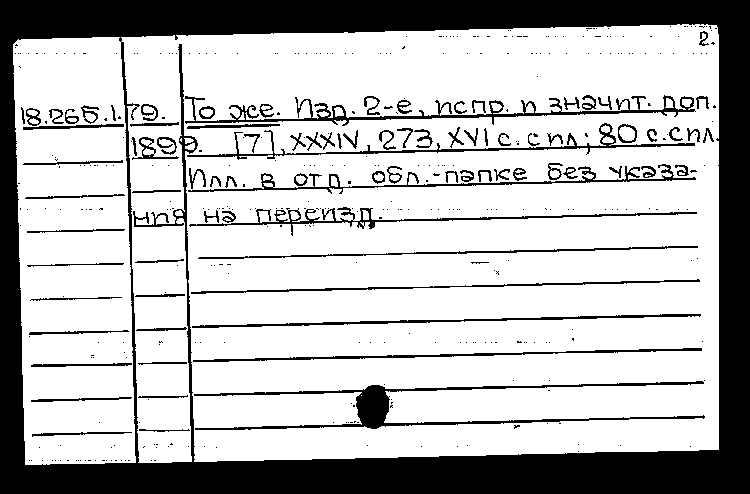 2.
18.265.1.79. То же. Изд. 2-е, испр. и значит. доп.
1899. [7], XXXIV, 273, XVI с. с ил.; 80 с. с ил.
Илл. в отд. обл.-папке без указа-
ния на переизд.